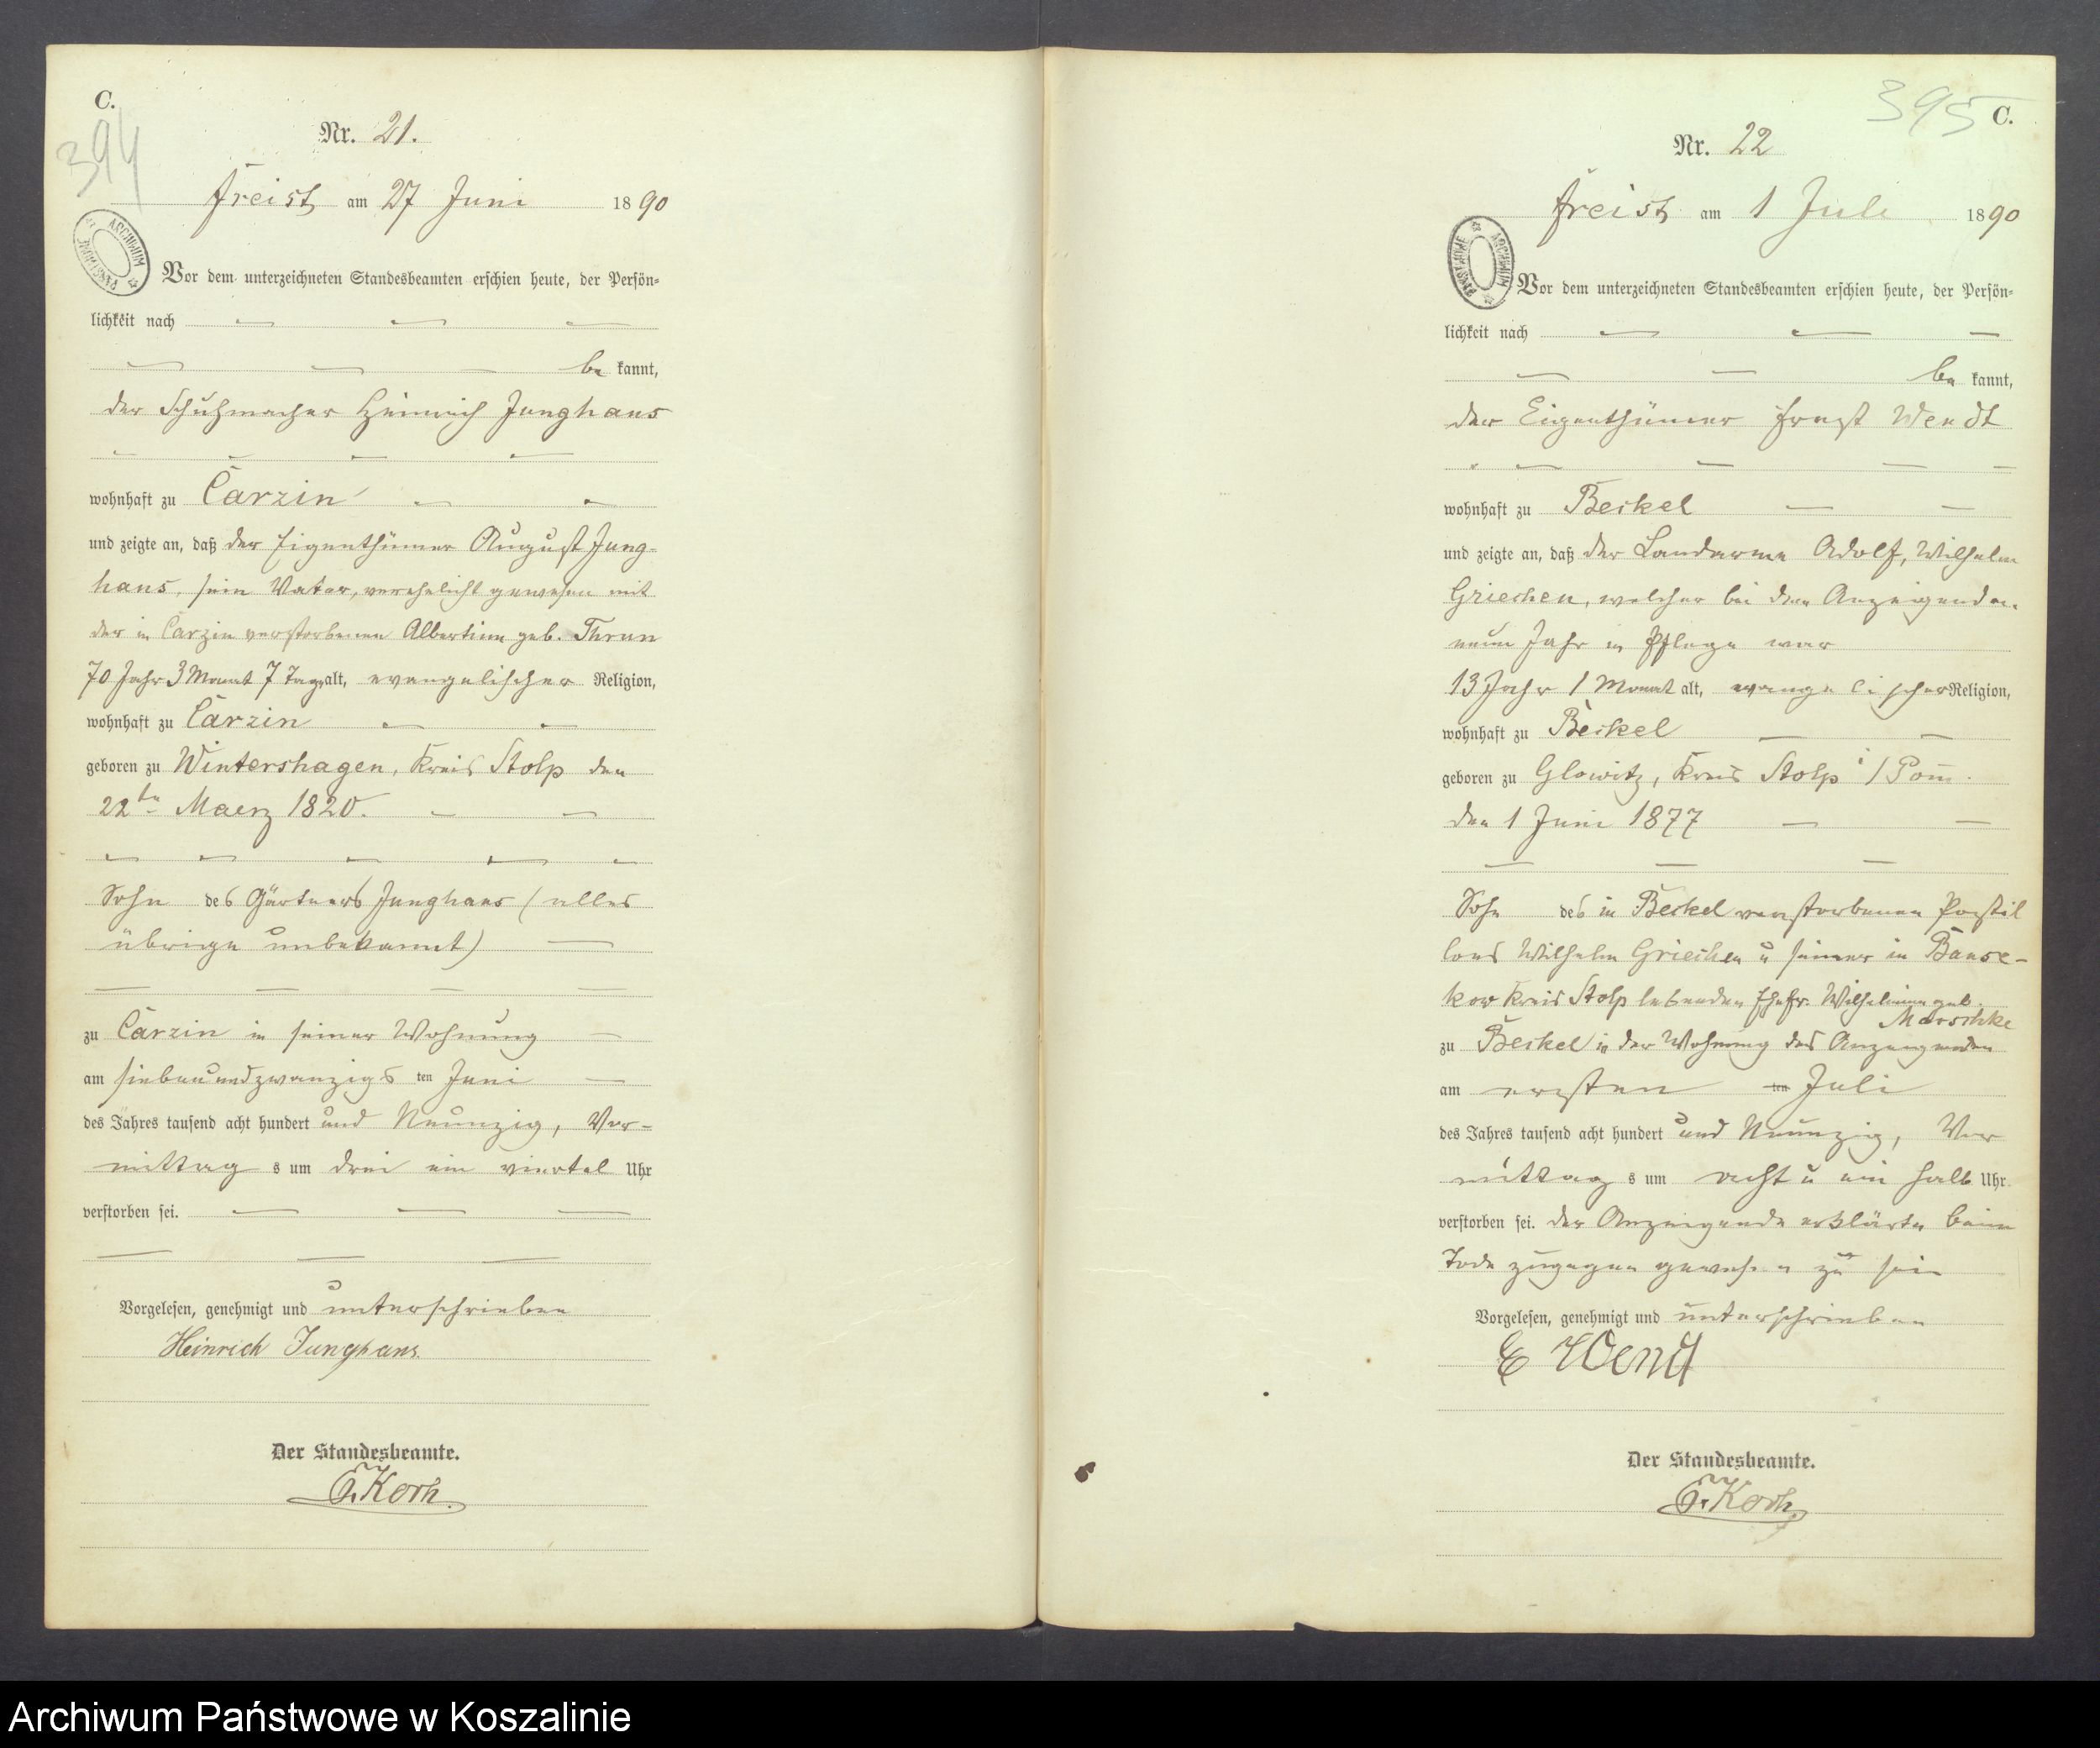 C.
394
Nr. 21.
Freist am 27 Juni 1890
ARCHIWUM PAŃSTWOWE
Vor dem unterzeichneten Standesbeamten erschien heute, der Persön-
lichkeit nach
be kannt,
der Schuhmacher Heinrich Junghans
wohnhaft zu Carzin
und zeigte an, daß der Eigenthümer August Jung-
hans, sein Vater, verehelicht gewesen mit
der in Carzin verstorbenen Albertine geb. Thrun
70 Jahr 3 Monat 7 Tage alt, evangelischer Religion,
wohnhaft zu Carzin
geboren zu Wintershagen, Kreis Stolp den
22ten Maerz 1820.
Sohn des Gärtners Junghans (alles
übrige unbekannt)
zu Carzin in seiner Wohnung
am siebenundzwanzigsten Juni
des Jahres tausend acht hundert und Neunzig, Vor-
mittags um drei ein viertel Uhr
verstorben sei.
Vorgelesen, genehmigt und unterschrieben
Heinrich Junghans.
Der Standesbeamte.
Koch
395 C.
Nr. 22
Freist am 1 Juli 1890
ARCHIWUM PAŃSTWOWE
Vor dem unterzeichneten Standesbeamten erschien heute, der Persön-
lichkeit nach
be kannt,
der Eigenthümer Ernst Wendt
wohnhaft zu Beckel
und zeigte an, daß der Landarme Adolf, Wilhelm
Griechen, welcher bei dem Anzeigenden
neun Jahr in Pflege war
13 Jahr 1 Monat alt, evangelischer Religion,
wohnhaft zu Beckel
geboren zu Glowitz, Kreis Stolp i/Pom.
den 1 Juni 1877
Sohn des in Beckel verstorbenen Postil
lons Wilhelm Griechen u seiner in Banse-
kow Kreis Stolp lebenden Ehefr. Wilhelmine geb.
Marschke
zu Beckel in der Wohnung des Anzeigenden
am ersten ten Juli
des Jahres tausend acht hundert und Neunzig, Vor
mittags um acht u ein halb Uhr
verstorben sei. der Anzeigende erklärte beim
Tode zugegen gewesen zu sein
Vorgelesen, genehmigt und unterschrieben
E Wendt
Der Standesbeamte.
Koch
Archiwum Państwowe w Koszalinie